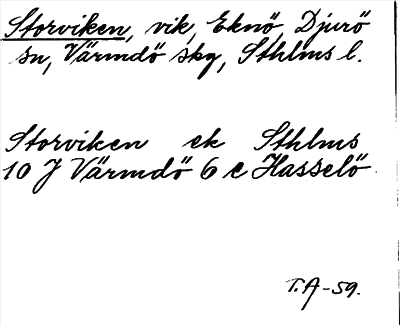 Storviken, vik, Eknö, Djurö
sn, Värmdö skg, Sthlms l.
Storviken ek Sthlms
10 J Värmdö 6 e Hasselö
T.A-59.